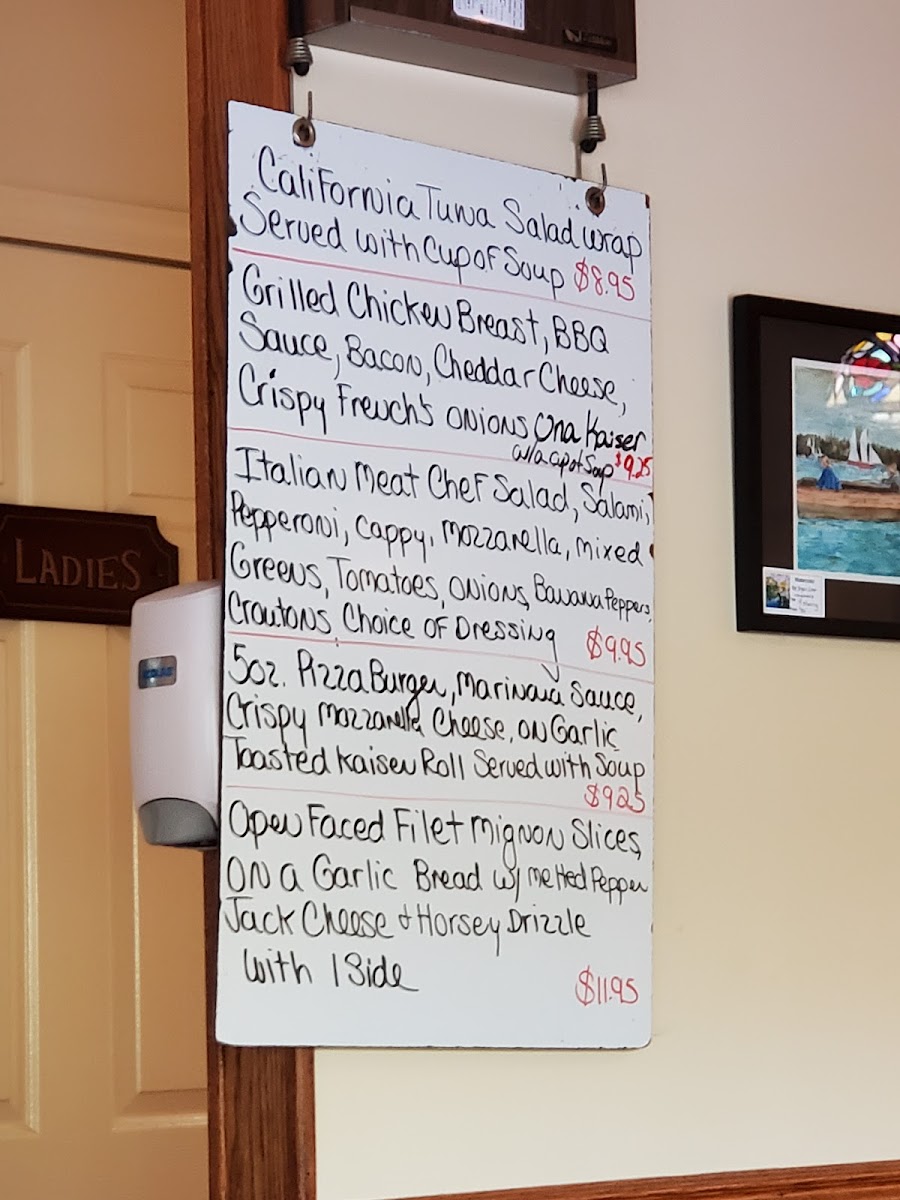 California Tuna Salad Wrap
Served with Cup of Soup $8.95
Grilled Chicken Breast, BBQ
Sauce, Bacon, Cheddar Cheese,
Crispy French's Onions On a Kaiser
w/a cup of Soup $9.25
Italian Meat Chef Salad, Salami,
Pepperoni, Cappy, Mozzarella, mixed
Greens, Tomatoes, Onions, Banana Peppers,
Croutons, Choice of Dressing $9.95
5oz. Pizza Burger, Marinara Sauce,
Crispy Mozzarella Cheese, on Garlic
Toasted Kaiser Roll Served with Soup
$9.25
Open Faced Filet Mignon Slices,
on a Garlic Bread w/ melted Pepper
Jack Cheese & Horsey Drizzle
with 1 Side $11.95
LADIES